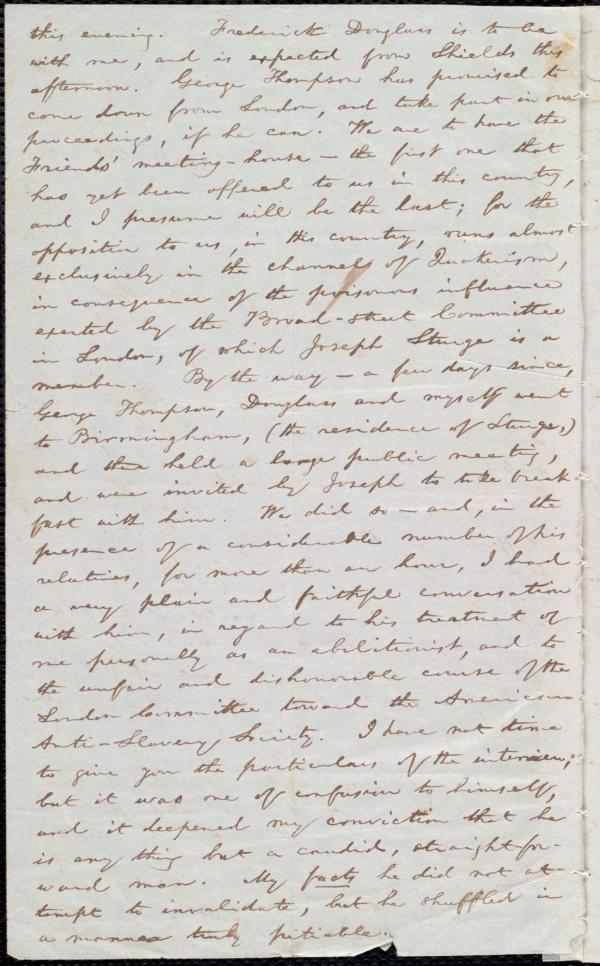 this evening. Frederick Douglass is to be
with me, and is expected from Shields this
afternoon. George Thompson has promised to
come down from London, and take part in our
proceedings, if he can. We are to have the
Friends' meeting-house — the first one that
has yet been offered to us in this country,
and I presume will be the last; for the
opposition to us, in this country, runs almost
exclusively in the channels of Quakerism,
in consequence of the poisonous influence
exerted by the Broad-street Committee
in London, of which Joseph Sturge is a
member. By the way — a few days since,
George Thompson, Douglass and myself went
to Birmingham, (the residence of Sturge,)
and there held a large public meeting,
and were invited by Joseph to take break-
fast with him. We did so — and, in the
presence of a considerable number of his
relatives, for more than an hour, I had
a very plain and faithful conversation
with him, in regard to his treatment of
me personally as an abolitionist, and to
the unfair and dishonorable course of the
London Committee toward the American
Anti-Slavery Society. I have not time
to give you the particulars of the interview;
but it was one of confusion to himself,
and it deepened my conviction that he
is any thing but a candid, straight-for-
ward man. My facts he did not at-
tempt to invalidate, but he shuffled in
a manner truly pitiable.